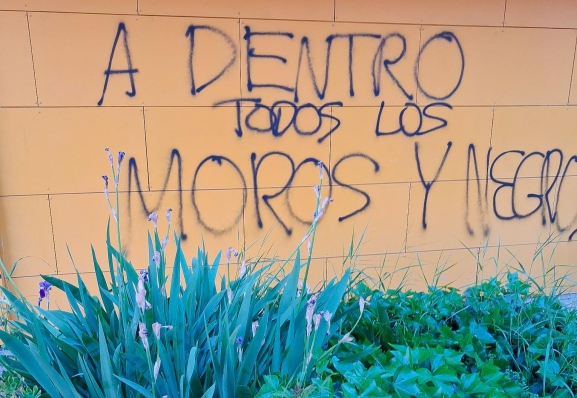 A DENTRO
TODOS LOS
MOROS Y NEGROS